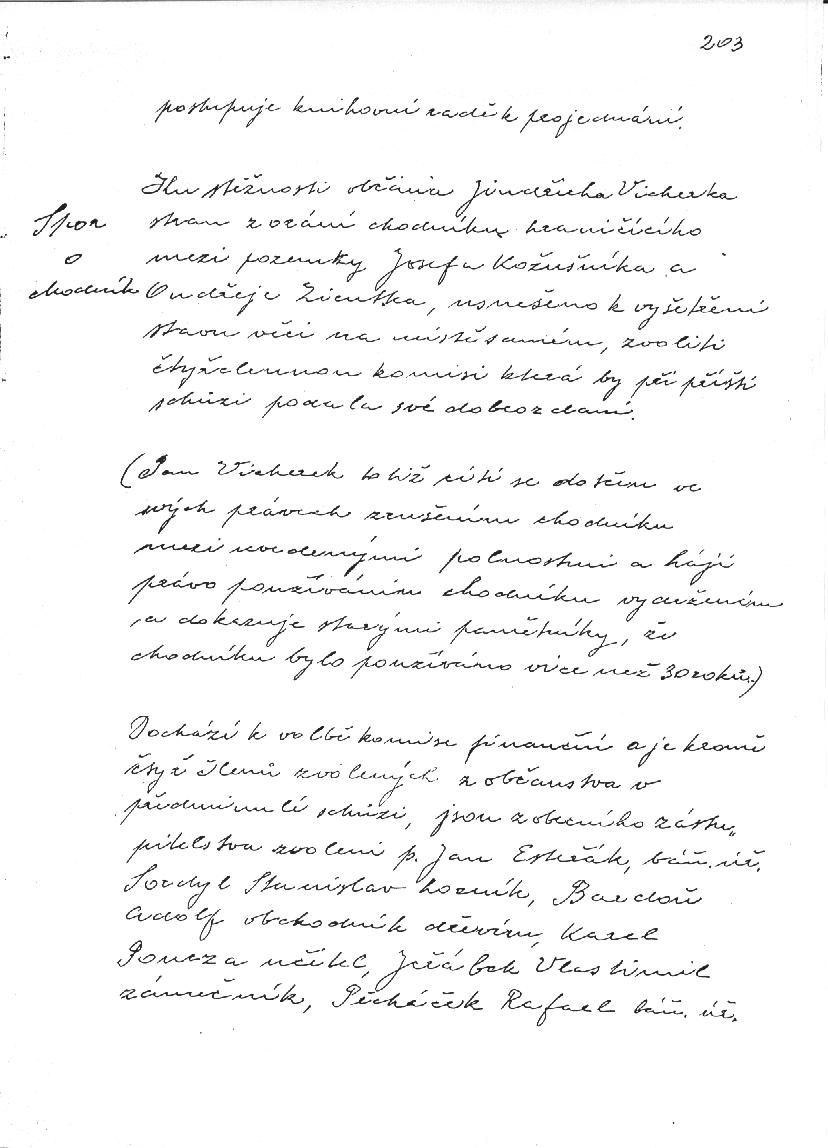 203
postupuje knihovní radě k projednání.
Ku stížnosti občana Jindřicha Vicherka
stran zorání chodníku hraničícího
mezi pozemky Josefa Kožušníka a
Ondřeje Zientka, usneseno k vyšetření
stavu věci na místě samém, zvoliti
čtyřčlennou komisi která by při příští
schůzi podala své dobrozdání.
Spor
o
chodník
(Pan Vicherek totiž cítí se dotčen ve
svých právech zrušením chodníku
mezi uvedenými polnostmi a hájí
právo používáním chodníku vydržením
a dokazuje starými pamětníky, že
chodníku bylo používáno více než 30 roků.)
Dochází k volbě komise finanční a je kromě
čtyř členů zvolených z občanstva v
předminulé schůzi, jsou z obecního zastu„
pitelstva zvoleni p. Jan Estřák, báň. úř.
Sordyl Stanislav horník, Bardoň
Adolf obchodník dřívím, Karel
Poncza učitel, Jeřábek Vlastimil
zámečník, Pěcháček Rafael báň. úř.